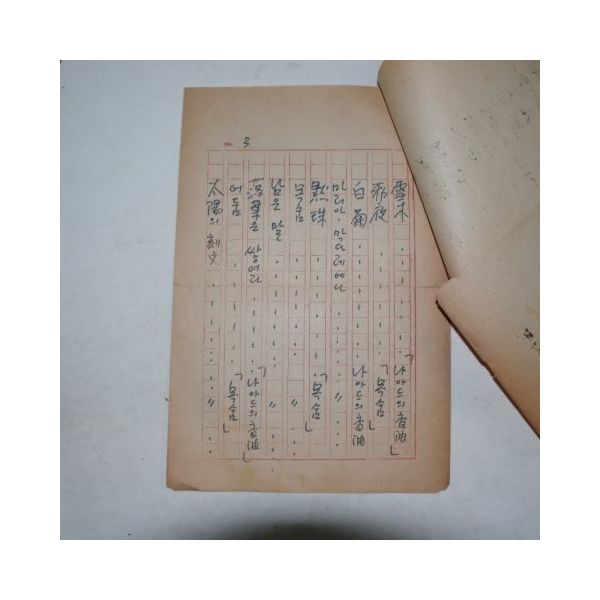 No. 3
雪木 ・・・・・・「나아드의 香油」
邪夜 ・・・・・・「목숨」
白菊 ・・・・・・「나아드의 香油」
마리아・막다레에나 ・・・・〃・・・
默珠 ・・・・・・「목숨」
목숨 ・・・・・・〃・・・
남은 말 ・・・・・・〃・・・
落葉은 쌓여라 ・・・・「나아드의 香油」
어둠 ・・・・・・「목숨」
太陽의 刻文 ・・・・・・〃・・・